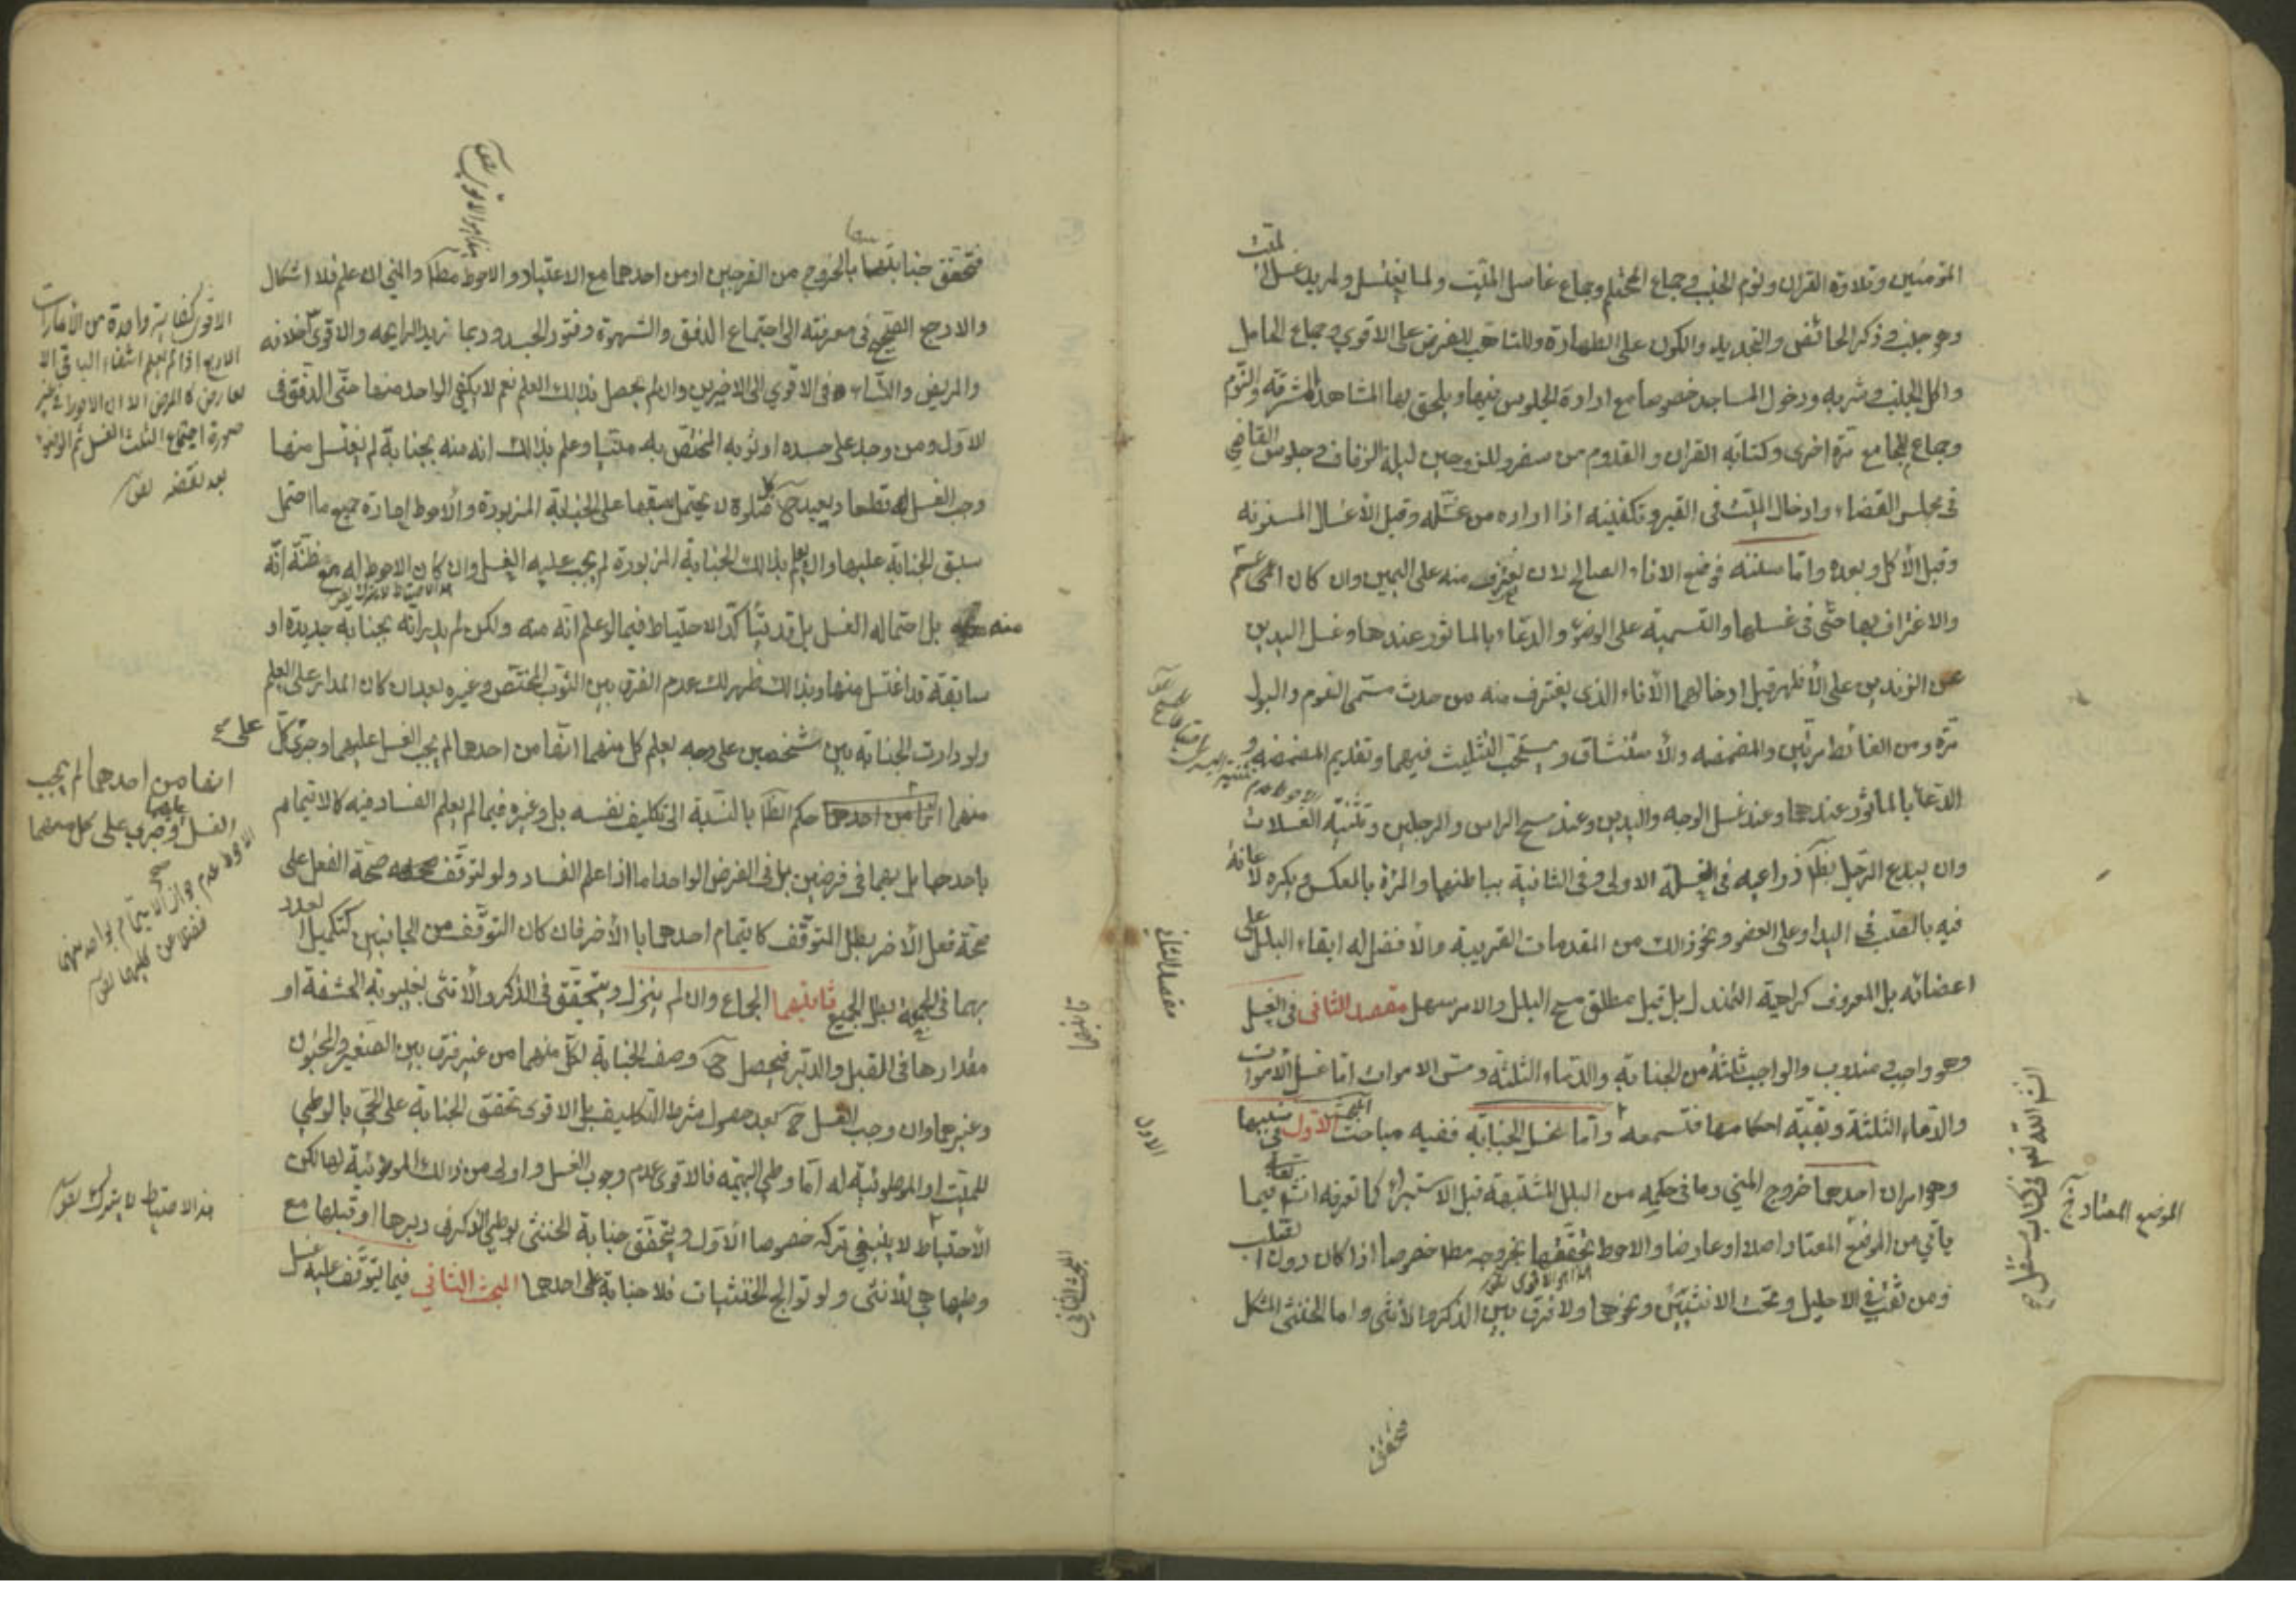 المؤمنين وتلاوة القران ونوم الجنب وجماع المحتلم وجماع غاسل الميت ولما يغتسل ولمريد غسل
الميت
وهو جنب وذكر الحائض والتجديد والكون على الطهارة وللتاهب للفرض على الاقوى وجماع الحامل
واكل الجنب وشربه ودخول المساجد خصوصا مع ارادة الجلوس فيها ويلحق بها المشاهد المشرفة والنوم
وجماع المجامع مرة اخرى وكتابة القران والقدوم من سفر وللزوجين ليلة الزفاف وجلوس القاضي
في مجلس القضاء وادخال الميت في القبر وتكفينه اذا اراده من غسله وقبل الأغسال المسنونه
وقبل الأكل وبعده واما سننه فوضع الاناء الصالح لان يغترف منه على اليمين وان كان اعم
والاغتراف بها حتى في غسلها والتسمية على الوضوء والدعاء بالماثور عندها وغسل اليدين
من الزندين على الأظهر قبل ادخالهما الأناء الذي يغترف منه من حدث ستمى النوم والبول
مرة ومن الغائط مرتين والمضمضه والأستنشاق ويستحب التثليث فيهما وتقديم المضمضه و
الدعا بالماثور عندهما وعند غسل الوجه واليدين وعند مسح الراس والرجلين وتثنية الغسلات
وان يبدء الرجل بظاهر ذراعيه في الغسلة الاولى وفي الثانية بباطنهما والمرأة بالعكس ويكره الاعانة
فيه بالصب في اليد او على العضو ونحو ذلك من المقدمات القريبة والأفضل له ابقاء البلل على
اعضائه بل المعروف كراهية التمندل بل قيل مطلق مسح البلل والامر سهل مقصد الثاني في الغسل
وهو واجب ومندوب والواجب ثلثة من الجنابة والدماء الثلثة ومس الاموات اما غسل الأموات
والدماء الثلثة وبقية احكامها فتسمعه واما غسل الجنابة ففيه مباحث المبحث الاول في سببها
وهو امران احدهما خروج المني وما في حكمه من البلل المشتبهة قبل الاستبراء كما تعرفه انشاء تعالى فيما
ياتي من الموضع المعتاد اصلا او عارضا والاحوط تحققها بخروجه مطلقا خصوصا اذا كان دون الصلب
ومن ثقب في الاحليل وتحت الانثيين ونحوها ولا فرق بين الذكر والأنثى واما الخنثى المشكل
هذا هو الاقوى
مقصد الثاني
الاول
انشاء الله تعالى في كتاب مستقل
الموضع المعتاد
فتحقق
فتحقق جنابتهما بالخروج من الفرجين او من احدهما مع الاعتياد والاحوط مطلقا والمني ان علم فلا اشكال
والارجح الصحيح في معرفته الى اجتماع الدفق والشهوة وفتور الجسد وربما تزيد الرايحه والاقوى خلافه
والمريض والنساء في الاقوى الى الاخيرين وان لم يحصل بذلك العلم نعم لا يكفي الواحد منها حتى الدفق في
الاول ومن وجد على جسده او ثوبه المختص به منيا وعلم بذلك انه منه بجنابة لم يغتسل منها
وجب الغسل قطعا ويعيد كل صلوة لا يحتمل سبقها على الجنابة المزبورة والأحوط اعادة جميع ما احتمل
سبق الجنابة عليها وان لم يعلم بذلك الجنابة المزبورة لم يجب عليه الغسل وان كان الاحوط له مع ظنة انه
هذا الاحتياط لا يترك
منه بل احتماله الغسل بل قد يتأكد الاحتياط فيما لو علم انه منه ولكن لم يدر انه بجنابة جديدة او
سابقة قد اغتسل منها وبذلك ظهر لك عدم الفرق بين الثوب المختص وغيره بعد ان كان المدار على العلم
ولو دارت الجنابة بين شخصين على وجه يعلم كل منهما انها من احدهما لم يجب الغسل عليهما وجرى كل
منهما حكم الطاهر بالنسبة الى تكليف نفسه بل وغيره فيما لم يعلم الفساد فيه كالايتمام
باحدهما بل بهما في فرضين بل في الفرض الواحد اما اذا علم الفساد ولو لتوقف صحة الفعل على
صحة فعل الأخر بطل المتوقف كايتمام احدهما بالأخر فان كان التوقف من الجانبين كتكميل العدد
بهما في الجمعة بطل الجميع ثانيهما الجماع وان لم ينزل ويتحقق في الذكر والأنثى بغيبوبة الحشفة او
مقدارها في القبل والدبر فيحصل ح وصف الجنابة لكل منهما من غير فرق بين الصغير والمجنون
وغيرهما وان وجب الغسل ح بعد حصول شرط التكليف بل الاقوى تحقق الجنابة على الحي بالوطي
للميت او الموطوئية له اما وطي البهيمه فالاقوى عدم وجوب الغسل واولى من ذلك الموطوئية لها لكن
الأحتياط لا ينبغي تركه خصوصا الأول ويتحقق جنابة الخنثى بوطي الذكر في دبرها او قبلها مع
وطيها هي للأنثى ولو توالج الخنثيات فلا جنابة على احدهما المبحث الثاني فيما يتوقف عليه غسل
ثانيهما
المبحث الثاني
الاقوى كفاية واحدة من الأمارات
الاربع اذا لم يعلم انتفاء الباقي الا
لعارض كالمرض الا ان الاحوط في غير
صورة اجتماع الثلث الغسل ثم الوضوء
بعد نقضه
انها من احدهما لم يجب
الغسل وجرى على كل منهما
الاولى عدم جواز الايتمام بواحد منهما
فضلا عن كليهما
هذا الاحتياط لا يترك